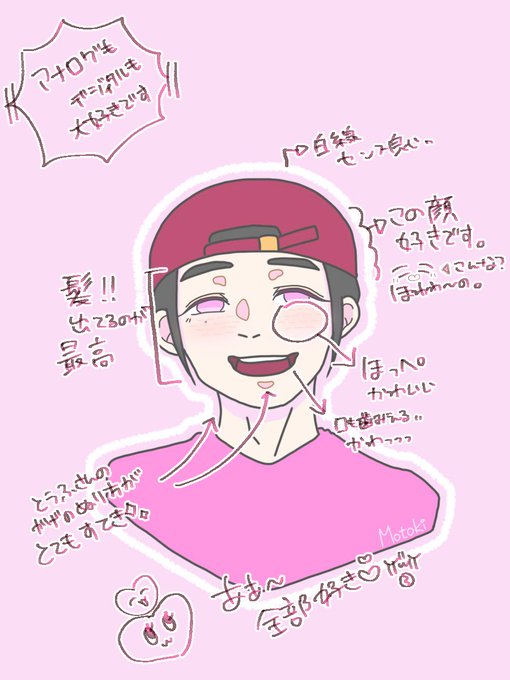 アナログも
デジタルも
大好きです
白線
センス良い..
この顔
好きです。
こんな?
ほわわ〜の。
髪!!
出てるのが
最高
ほっぺ。
かわいい
口も歯みえる..
かわっっっ
とうふさんの
かげのぬりあが
とてもすてき
Motoki
あぁ〜
全部好き♡